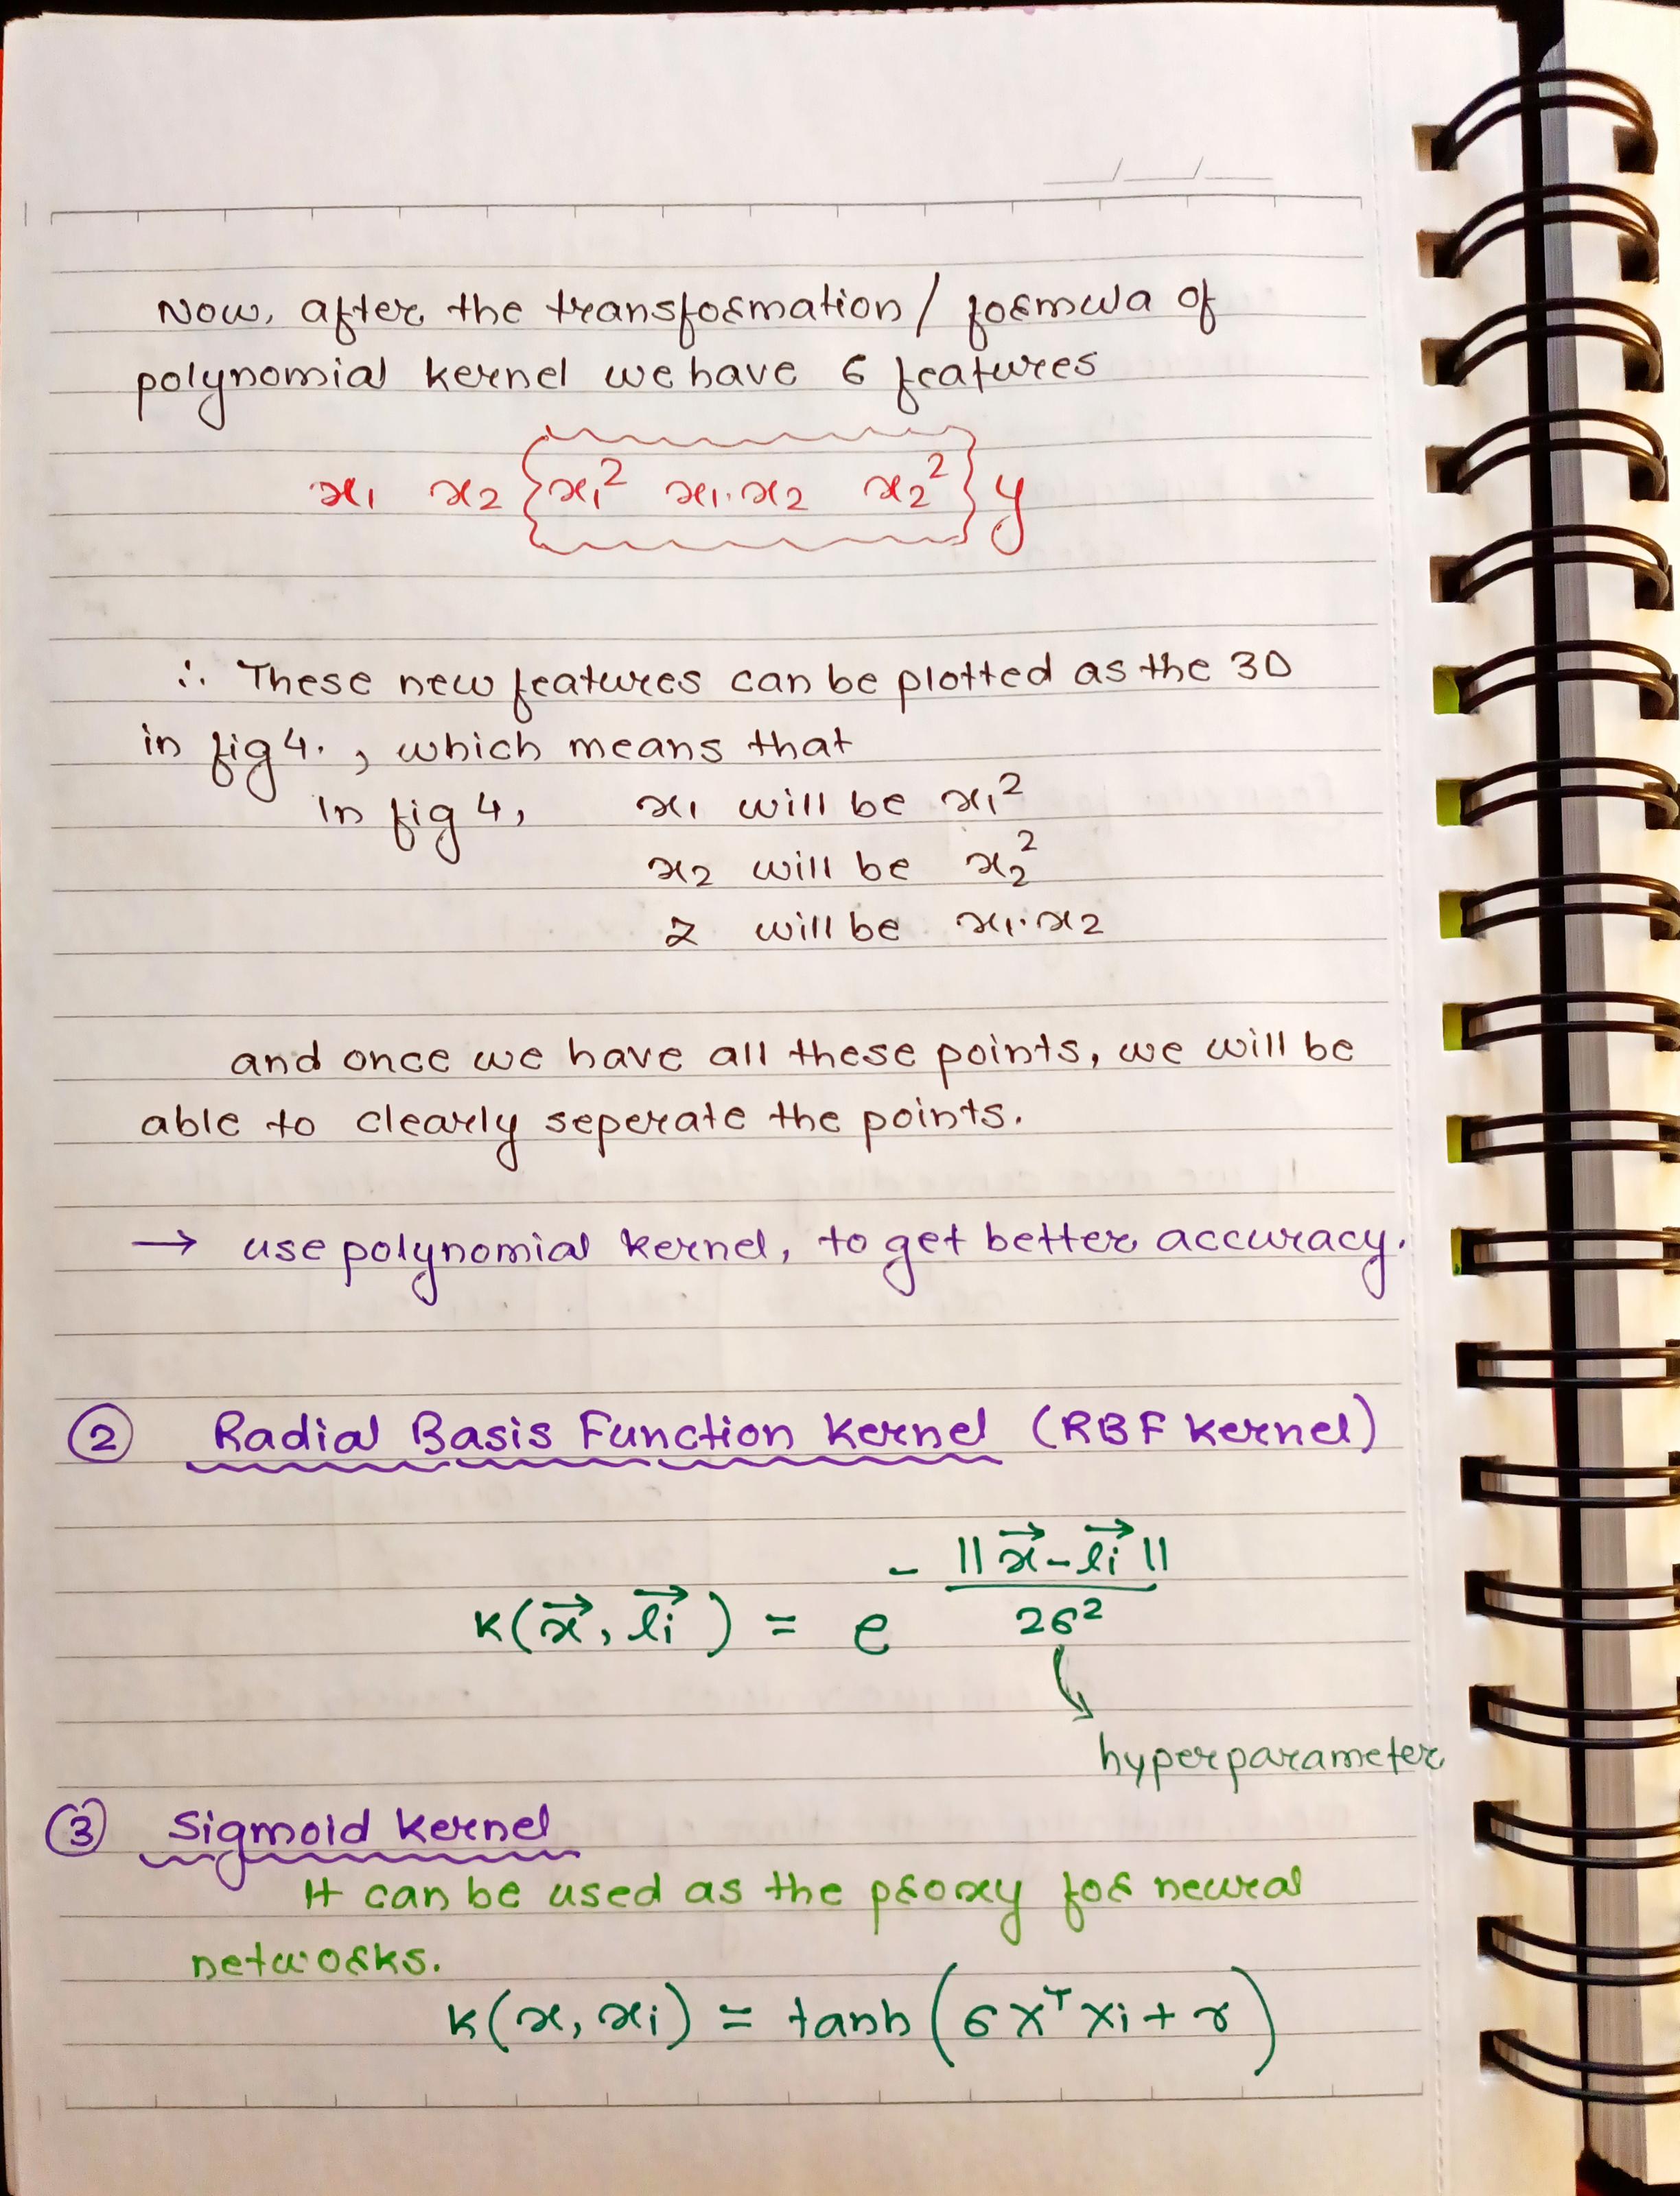 Now, after the transformation / formula of
polynomial kernel we have 6 features
x₁ x₂ {x₁² x₁.x₂ x₂²} y
∴ These new features can be plotted as the 3D
in fig 4. , which means that
In fig 4, x₁ will be x₁²
x₂ will be x₂²
z will be x₁.x₂
and once we have all these points, we will be
able to clearly seperate the points.
→ use polynomial kernel, to get better accuracy.
② Radial Basis Function Kernel (RBF Kernel)
K(x⃗, l⃗ᵢ) = e^(- ||x⃗ - l⃗ᵢ|| / 2σ²)
hyperparameter
③ Sigmoid Kernel
It can be used as the proxy for neural
networks.
K(x, xᵢ) = tanh(σxᵀxᵢ + r)